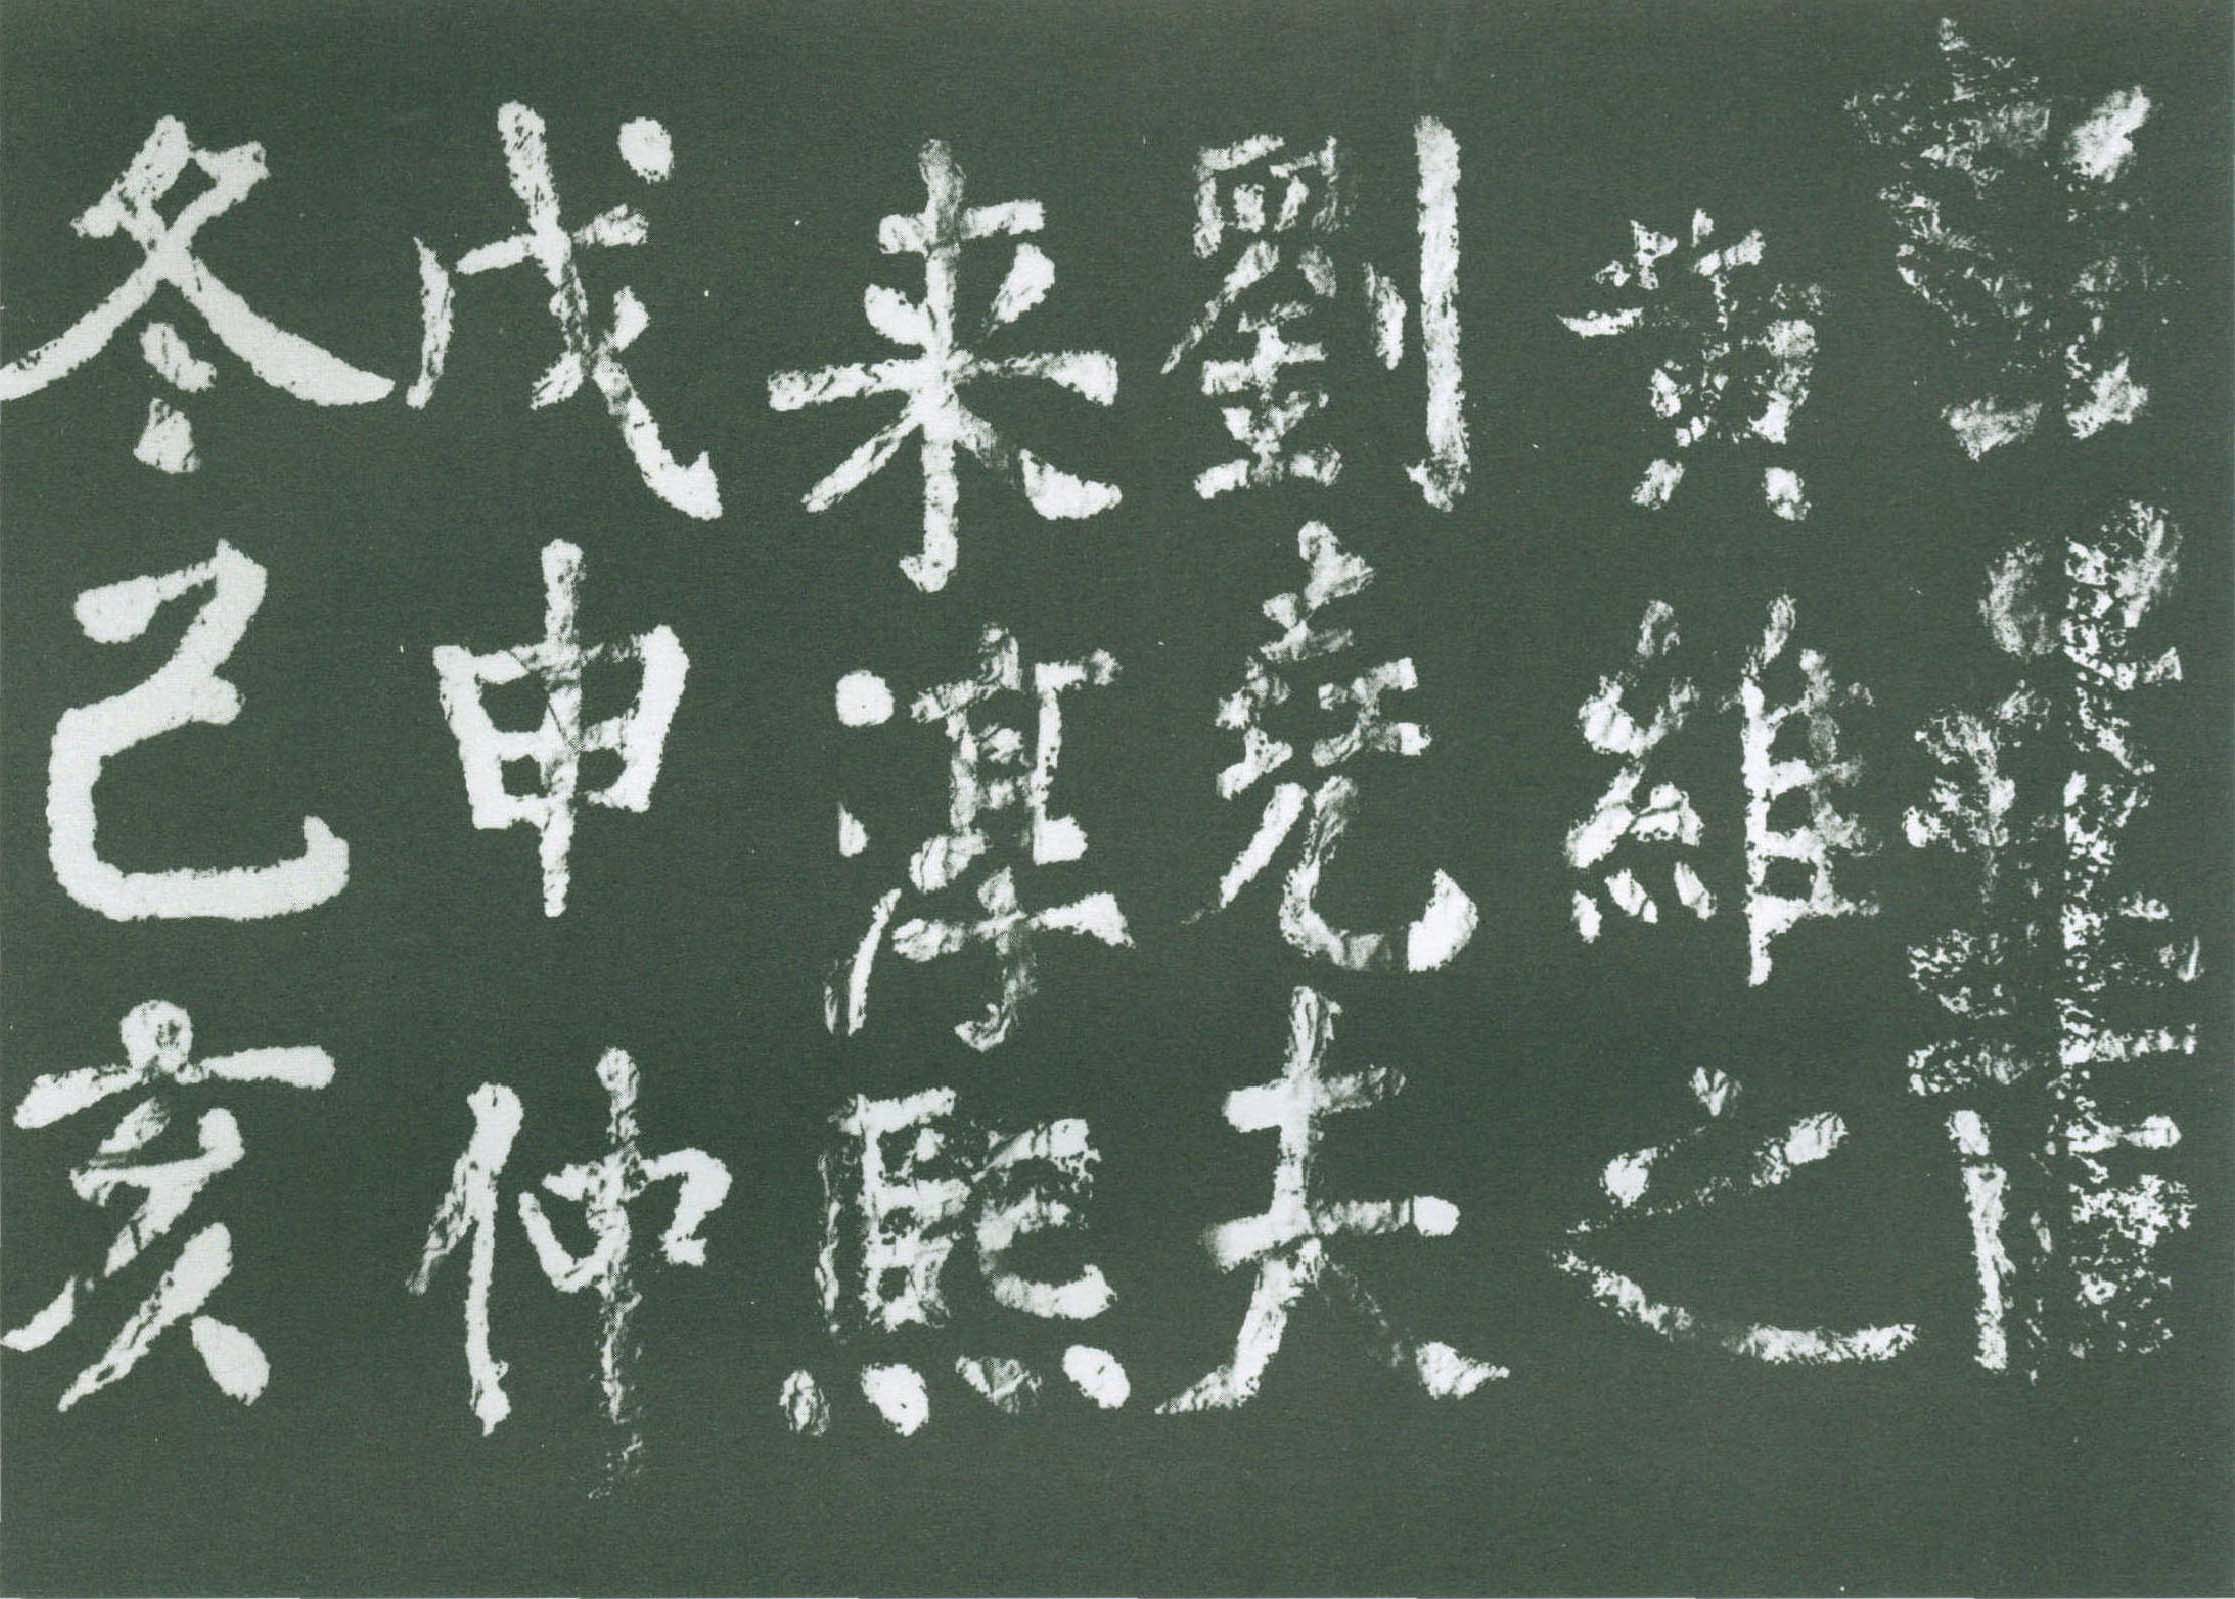 黄維之
劉堯夫
来淳熙
戊申仲
冬己亥